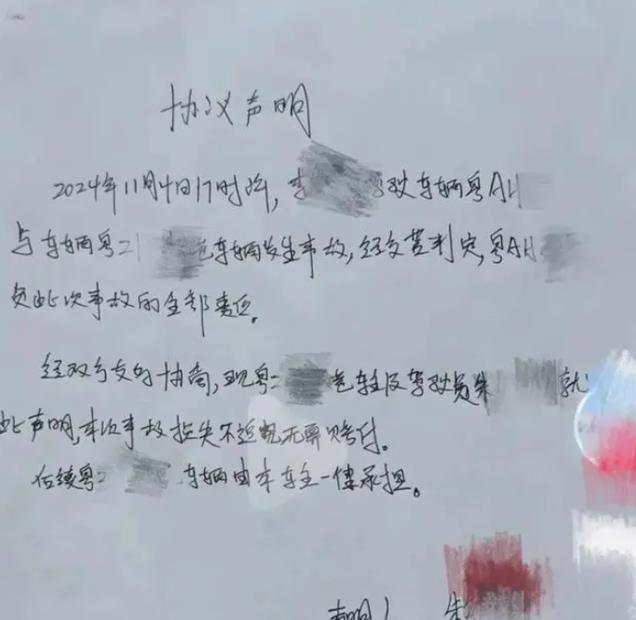 协议声明
2024年11月4日17时许,李 驾驶车辆粤AH
与车辆粤Z 车辆发生事故,经交警判定,粤AH
负此次事故的全部责任。
经双方友好协商,现粤Z 车主及驾驶员朱 就
此声明,本次事故损失不追究无需赔付。
后续粤Z 车辆由本车主一律承担。
声明人 朱